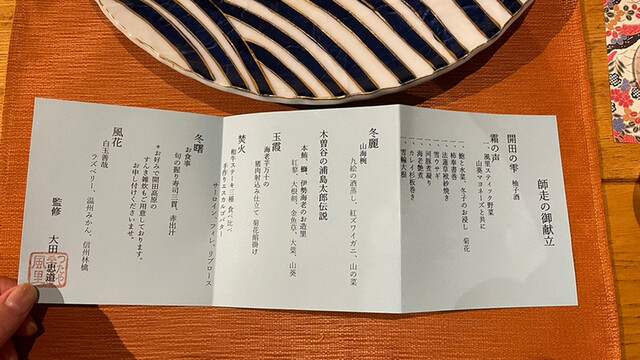 師走の御献立
開田の雫 柚子酒
霜の声
一、風里スティック野菜
山葵マヨネーズと共に
一、鮑と水菜、冬子のお浸し 菊花
一、柿奉書巻
一、法蓮草根紗焼き
一、雪ウサギ
一、河豚煮凝り
一、海老艶煮
一、カレイ杉板巻き
一、雪輪大根
冬麗
山海椀
九絵の酒蒸し、紅ズワイガニ、山の菜
木曽谷の浦島太郎伝説
本鮪、鰤、伊勢海老のお造里
紅蓼、大根剣、金魚草、大葉、山葵
玉霰
海老芋万十の
猪肉射込み仕立て 菊花餡掛け
焚火
和牛ステーキ三種 食べ比べ
サーロイン、フィレ、リブロース
手作りエスカルゴバター
冬曙
お食事
旬の握り寿司三貫 赤出汁
*お好みで開田高原の
すんき雑炊もご用意しております。
お申し付けくださいませ。
風花
白玉善哉
ラズベリー、温州みかん、信州林檎
監修 大田
恵道
つたや
風里